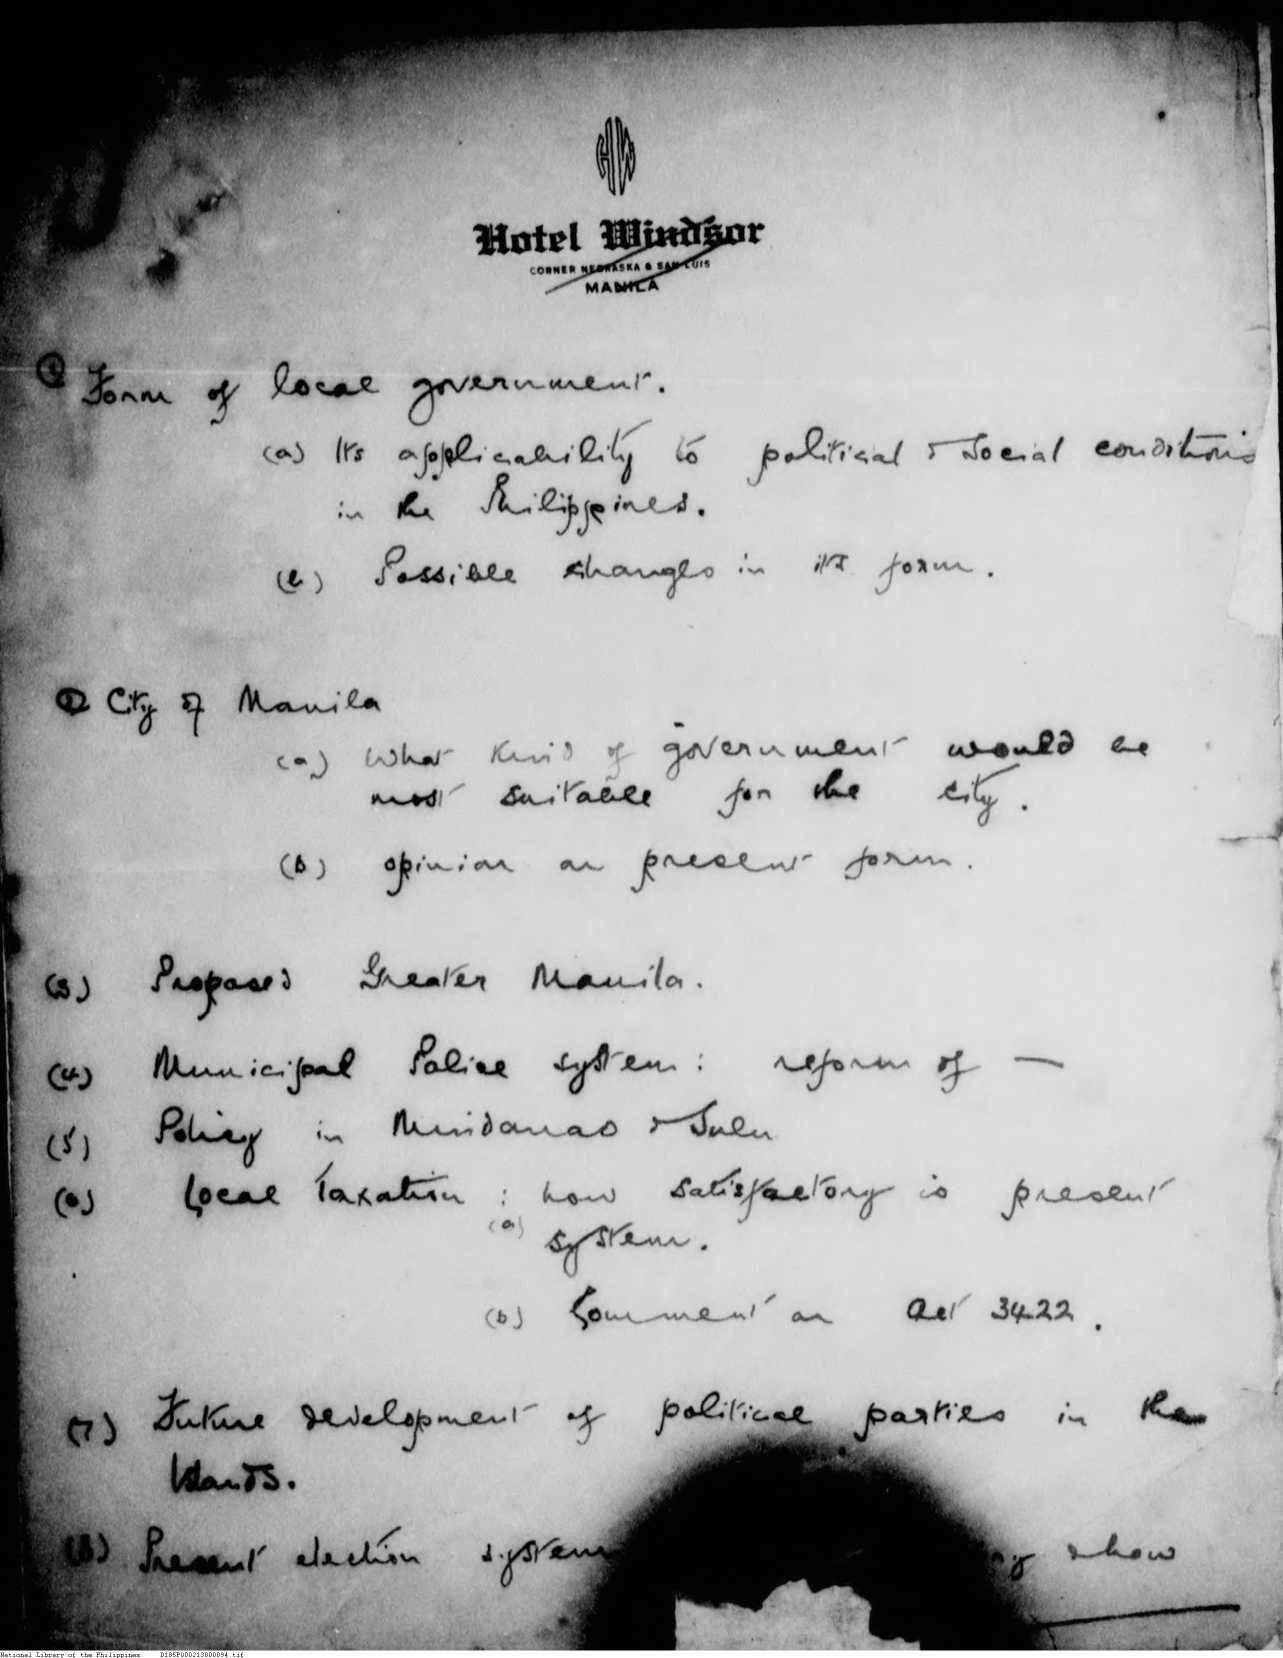 HW
Hotel Windsor
CORNER NEBRASKA & SAN LUIS
MANILA
① Form of local government.
(a) Its applicability to political & social conditions
in the Philippines.
(b) Possible changes in its form.
② City of Manila
(a) What kind of government would be
most suitable for the city.
(b) opinion on present form.
(3) Proposed Greater Manila.
(4) Municipal Police system: reform of —
(5) Policy in Mindanao & Sulu
(6) Local Taxation : how satisfactory is present
(a) system.
(b) Comment on Act 3422.
(7) Future development of political parties in the
Islands.
(8) Present election system & how
National Library of the Philippines D185P000213800094.tif